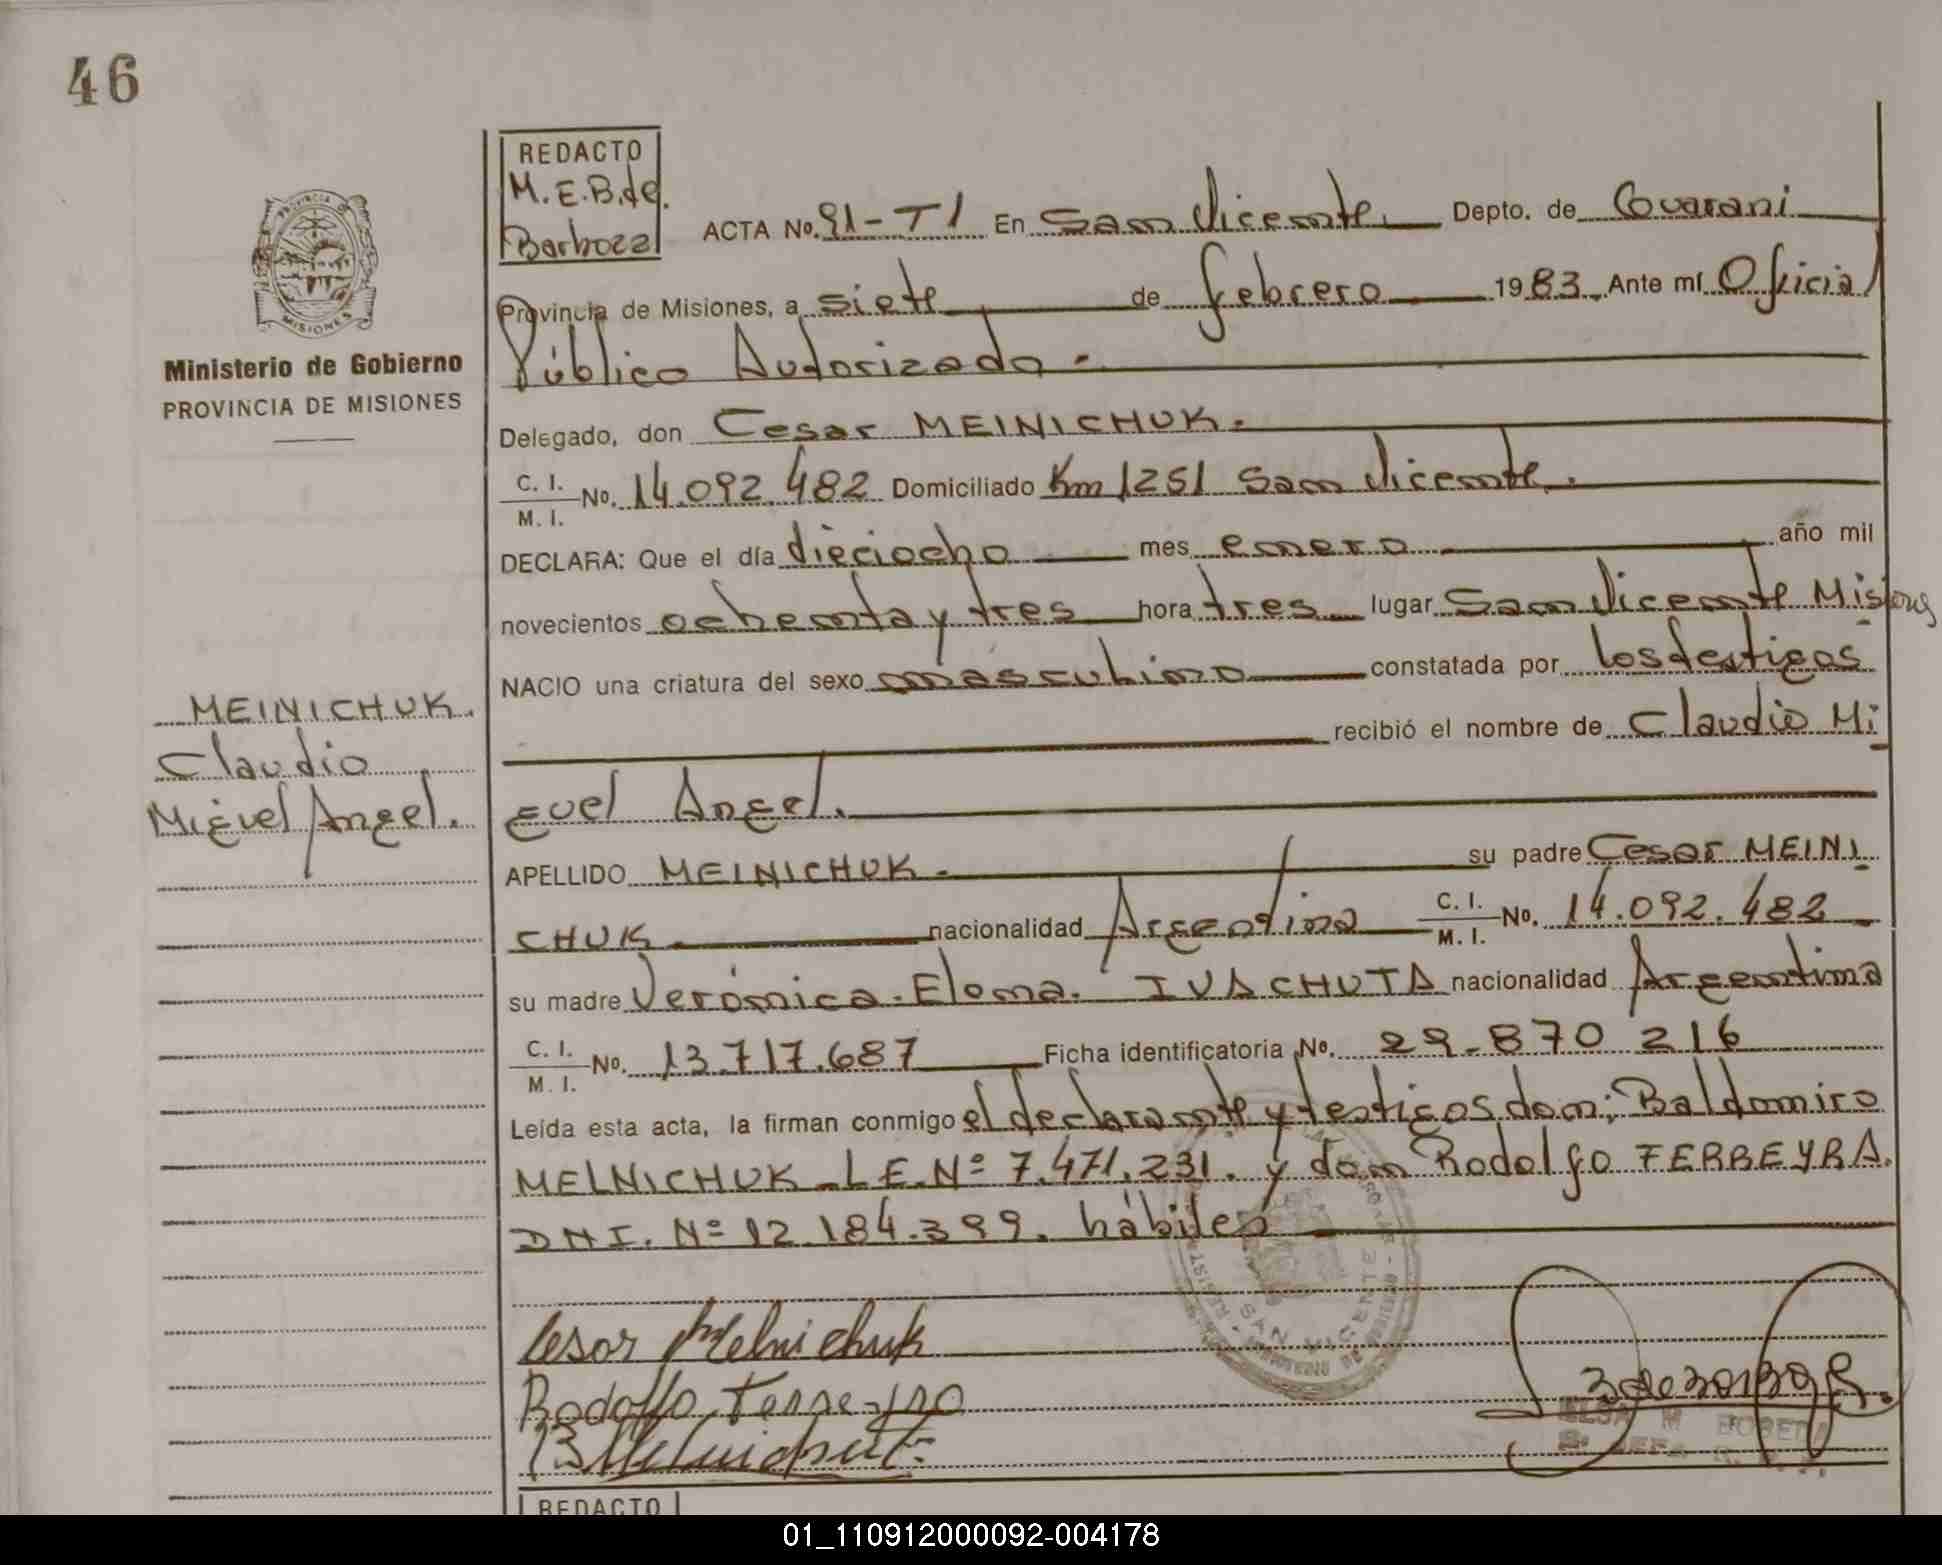 46
REDACTO
M.E.B.de.
Barboza
ACTA No. 91-T1 En San Vicente, Depto. de Guarani
Provincia de Misiones, a siete de febrero 1983. Ante mí Oficial
Público Autorizado.-
Ministerio de Gobierno
PROVINCIA DE MISIONES
PROVINCIA DE
MISIONES
Delegado, don Cesar MEINICHUK.
C. I.
M. I. No. 14.092.482 Domiciliado Km 1251 San Vicente.
DECLARA: Que el día dieciocho mes enero año mil
novecientos ochenta y tres hora tres lugar San Vicente Misiones
NACIO una criatura del sexo masculino constatada por los testigos
recibió el nombre de Claudio Mi
guel Angel.
MEINICHUK.
Claudio
Miguel Angel.
APELLIDO MEINICHUK. su padre Cesar MEINI
CHUK nacionalidad Argentina C. I. M. I. No. 14.092.482
su madre Verónica. Elena. IVACHUTA nacionalidad Argentina
C. I.
M. I. No. 13.717.687 Ficha identificatoria No. 29.870 216
Leída esta acta, la firman conmigo el declarante y testigos, don: Baldomiro
MELNICHUK L.E.Nº 7.471.231. y don Rodolfo FERREYRA.
DNI. Nº 12.184.399. hábiles
SAN VICENTE
Cesar Melnichuk
Rodolfo Ferreyra
B Melnichuk
ELSA M
REDACTO
01_110912000092-004178